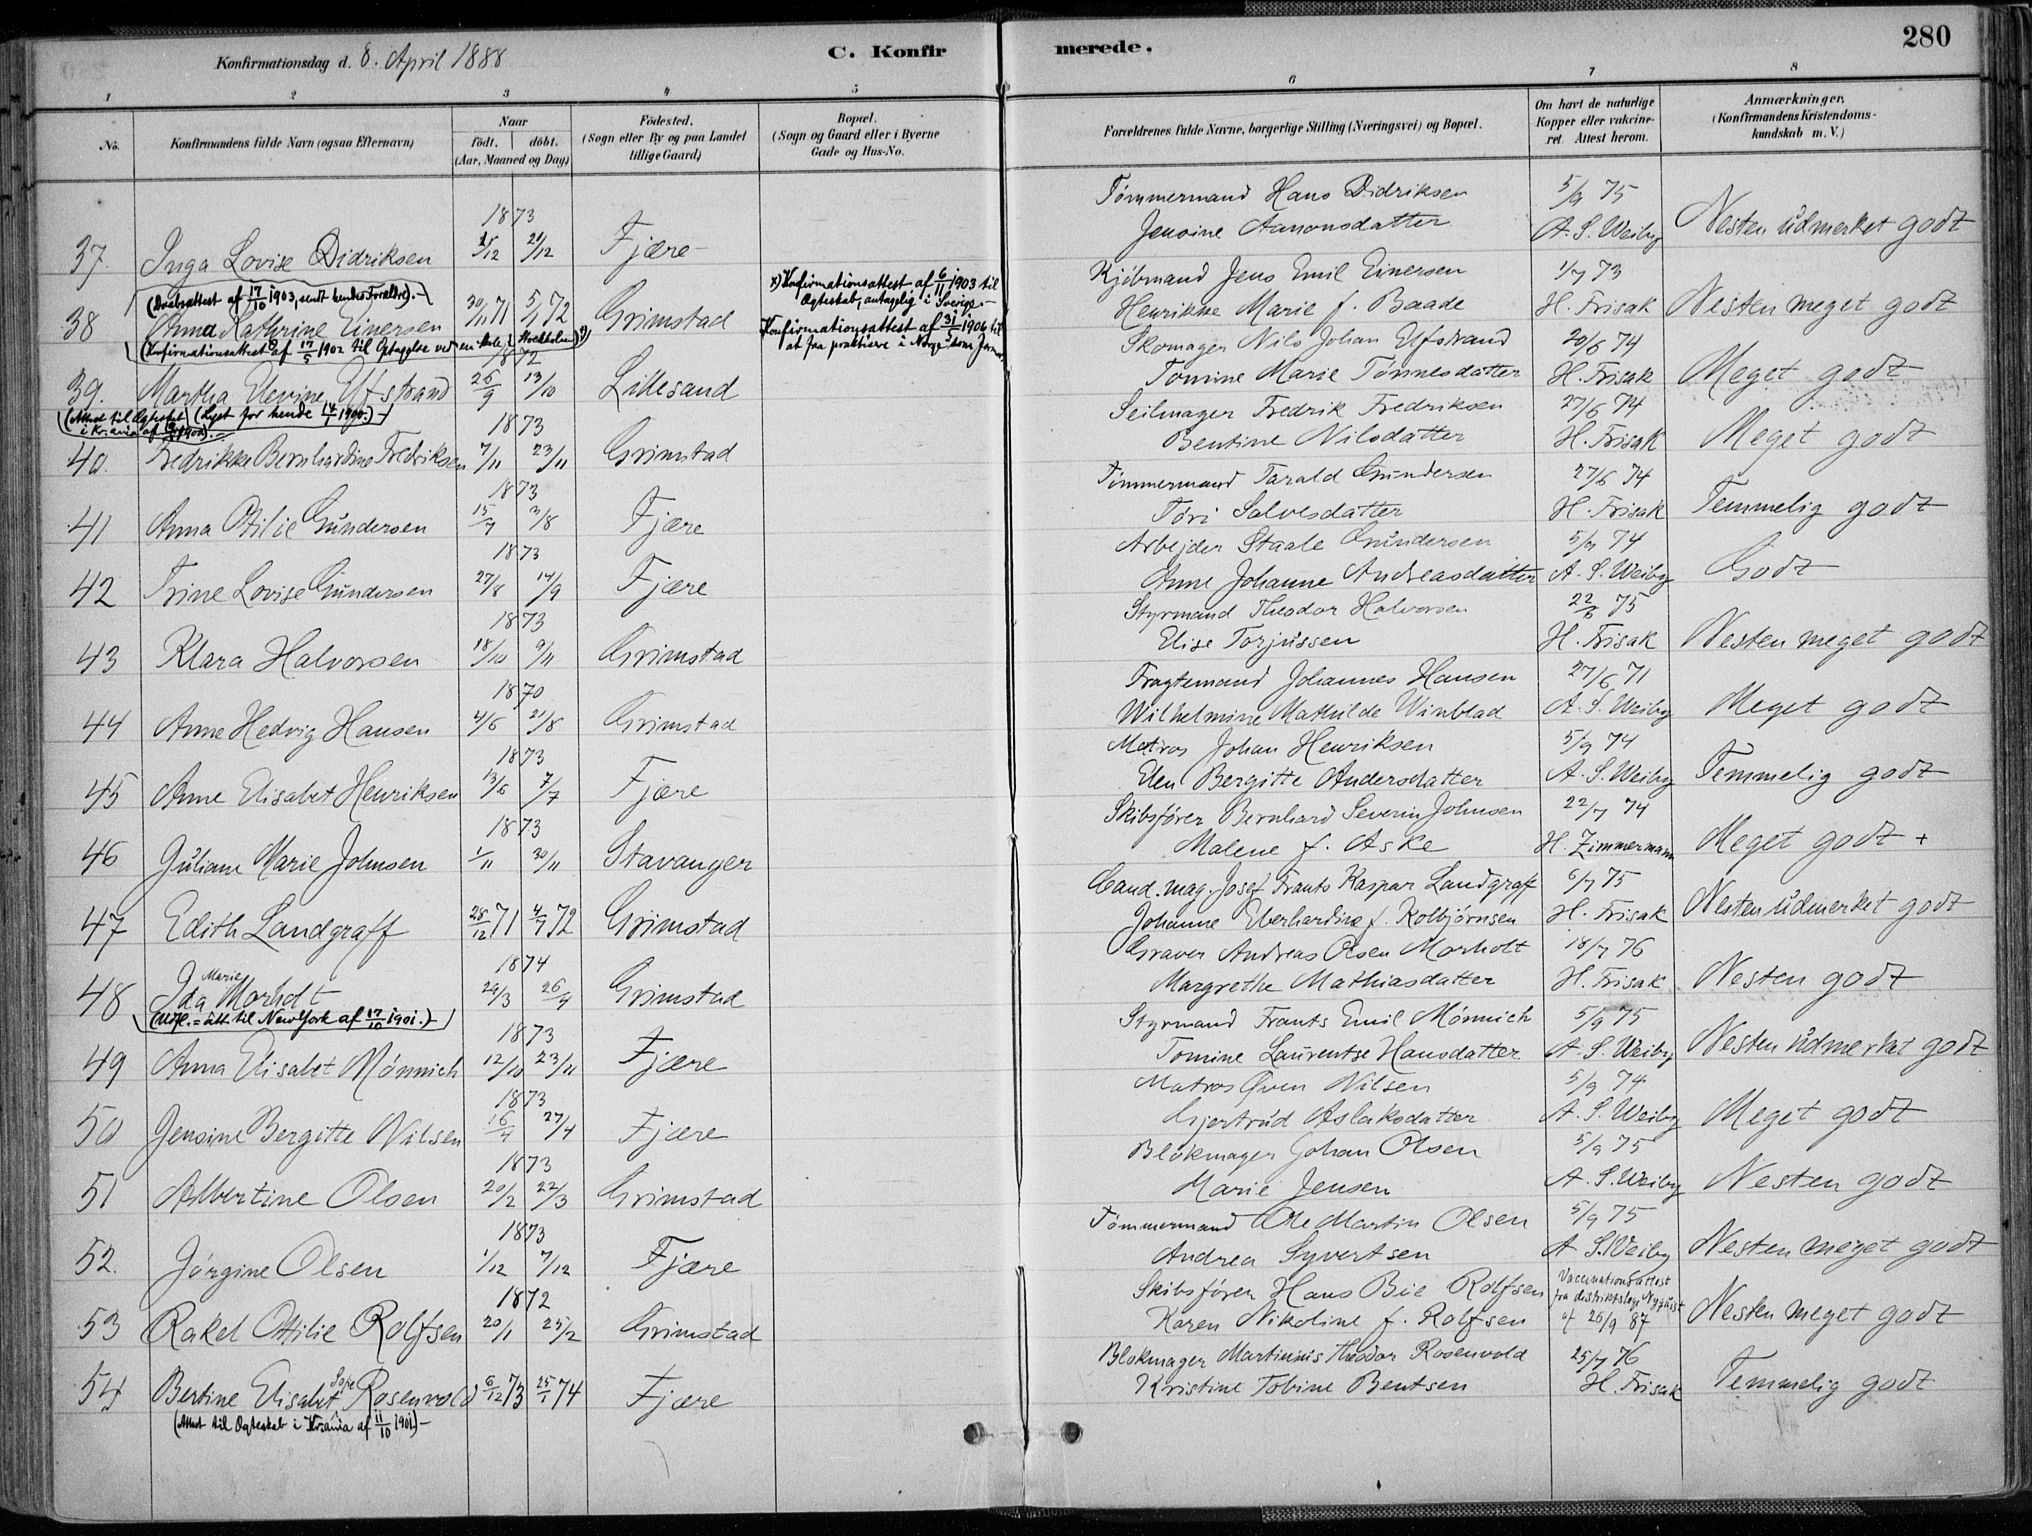 280
Konfirmationsdag d. 8. April 1888
C. Konfirmerede.
1 2 3 4 5 6 7 8
No.
Konfirmandens fulde Navn (ogsaa Efternavn)
Naar
födt. döbt.
(Aar, Maaned og Dag)
Födested.
(Sogn eller By og paa Landet
tillige Gaard)
Bopæl.
(Sogn og Gaard eller i Byerne
Gade og Hus-No.
Forældrenes fulde Navne, borgerlige Stilling (Næringsvei) og Bopæl.
Om havt de naturlige
Kopper eller vakcine-
ret. Attest herom.
Anmærkninger.
(Konfirmandens Kristendoms-
kundskab m. V.)
1873
37. Inga Lovise Didriksen 21/12 Fjære
Tömmermand Hans Didriksen 5/9 75
Jensine Aanonsdatter A. S. Weiby Nesten údmerket godt
(Daabsattest af 17/10 1903, sendt hendes Forældre).-
38 Anna Kathrine Einersen 30/11 71 5/1 72 Grimstad
x) Konfirmationsattest af 6/11 1903 til
Ægteskab, antagelig i Sverige.-
Konfirmationsattest af 31/5 1906 til
at faa praktisere i Norge som
(Konfirmationsattest af 17/5 1902 til Optagelse ved en Skole i Stockholm)x)
Kjöbmand Jens Emil Einersen 1/7 73
Henrikke Marie f. Baade H. Frisak Nesten meget godt
1872
39. Martha Elevine Elfstrand 26/9 13/10 Lillesand
(Attest til Ægteskab (Lyst for hende 14/1 1900.)-
i Kr.ania af 1900).-
Skomager Nils Johan Elfstrand 20/6 74
Tomine Marie Tönnesdatter H. Frisak Meget godt
1873
40. Fredrikke Bernhardine Fredriksen 7/11 23/11 Grimstad
Seilmager Fredrik Fredriksen 27/6 74
Bentine Nilsdatter H. Frisak Meget godt
1873
41 Anna Otilie Gúndersen 15/7 3/8 Fjære
Tömmermand Tarald Gúndersen 27/6 74
Töri Salvesdatter H. Frisak Temmelig godt
1873
42 Trine Lovise Gúndersen 27/8 14/9 Fjære
Arbejder Staale Gúndersen 5/9 74
Anne Johanne Andreasdatter A. S. Weiby Godt
1873
43 Klara Halvorsen 18/10 9/11 Grimstad
Styrmand Theodor Halvorsen 22/6 75
Elise Torjússen H. Frisak Nesten meget godt
1870
44 Anne Hedvig Hansen 4/6 21/8 Grimstad
Fragtemand Johannes Hansen 27/6 71
Wilhelmine Mathilde Winblad A. S. Weiby Meget godt
1873
45 Anne Elisabet Henriksen 13/6 7/7 Fjære
Matros Johan Henriksen 5/9 74
Elen Bergitte Andersdatter A. S. Weiby Temmelig godt
1873
46 Júliane Marie Johnsen 1/11 30/11 Stavanger
Skibsförer Bernhard Severin Johnsen 22/7 74
Malene f. Aske H. Zimmermann Meget godt +
47 Edith Landgraff 28/12 71 4/7 72 Grimstad
Cand. mag. Josef Frants Kaspar Landgraff 6/7 75
Johanne Eberhardine f. Kolbjörnsen H. Frisak Nesten údmerket godt
1874
48 Ida Marie Morholt 29/3 26/4 Grimstad
(Udfl.=att til NewYork af 17/10 1901.)-
Graver Andreas Olsen Morholt 18/7 76
Margrethe Mathiasdatter H. Frisak Nesten godt
1873
49 Anna Elisabet Mönnich 12/10 23/11 Fjære
Styrmand Frants Emil Mönnich 5/9 75
Tomine Laurentse Hansdatter A. S. Weiby Nesten údmerket godt
1873
50 Jensine Bergitte Nilsen 16/4 27/4 Fjære
Matros Even Nilsen 5/9 74
Gjertrúd Aslaksdatter A. S. Weiby Meget godt
1873
51 Albertine Olsen 20/2 22/3 Grimstad
Blokmager Johan Olsen 5/9 75
Marie Jensen A. S. Weiby Nesten godt
1873
52. Jörgine Olsen 1/12 7/12 Fjære
Tömmermand Ole Martin Olsen 5/9 75
Andrea Syvertsen A. S. Weiby Nesten meget godt
1872
53 Rakel Ottilie Rolfsen 20/1 25/2 Grimstad
Skibsförer Hans Bie Rolfsen Vaccinationsattest
fra distriktslæge
Karen Nikoline f. Rolfsen af 26/9 87 Nesten meget godt
54 Bertine Elisabet Sofie Rosenvold 6/12 73 25/1 74 Fjære
(Attest til Ægteskab i Kr.ania af 11/10 1901)-
Blokmager Martinius Theodor Rosenvold 25/7 76
Kristine Tobine Bentsen H. Frisak Temmelig godt